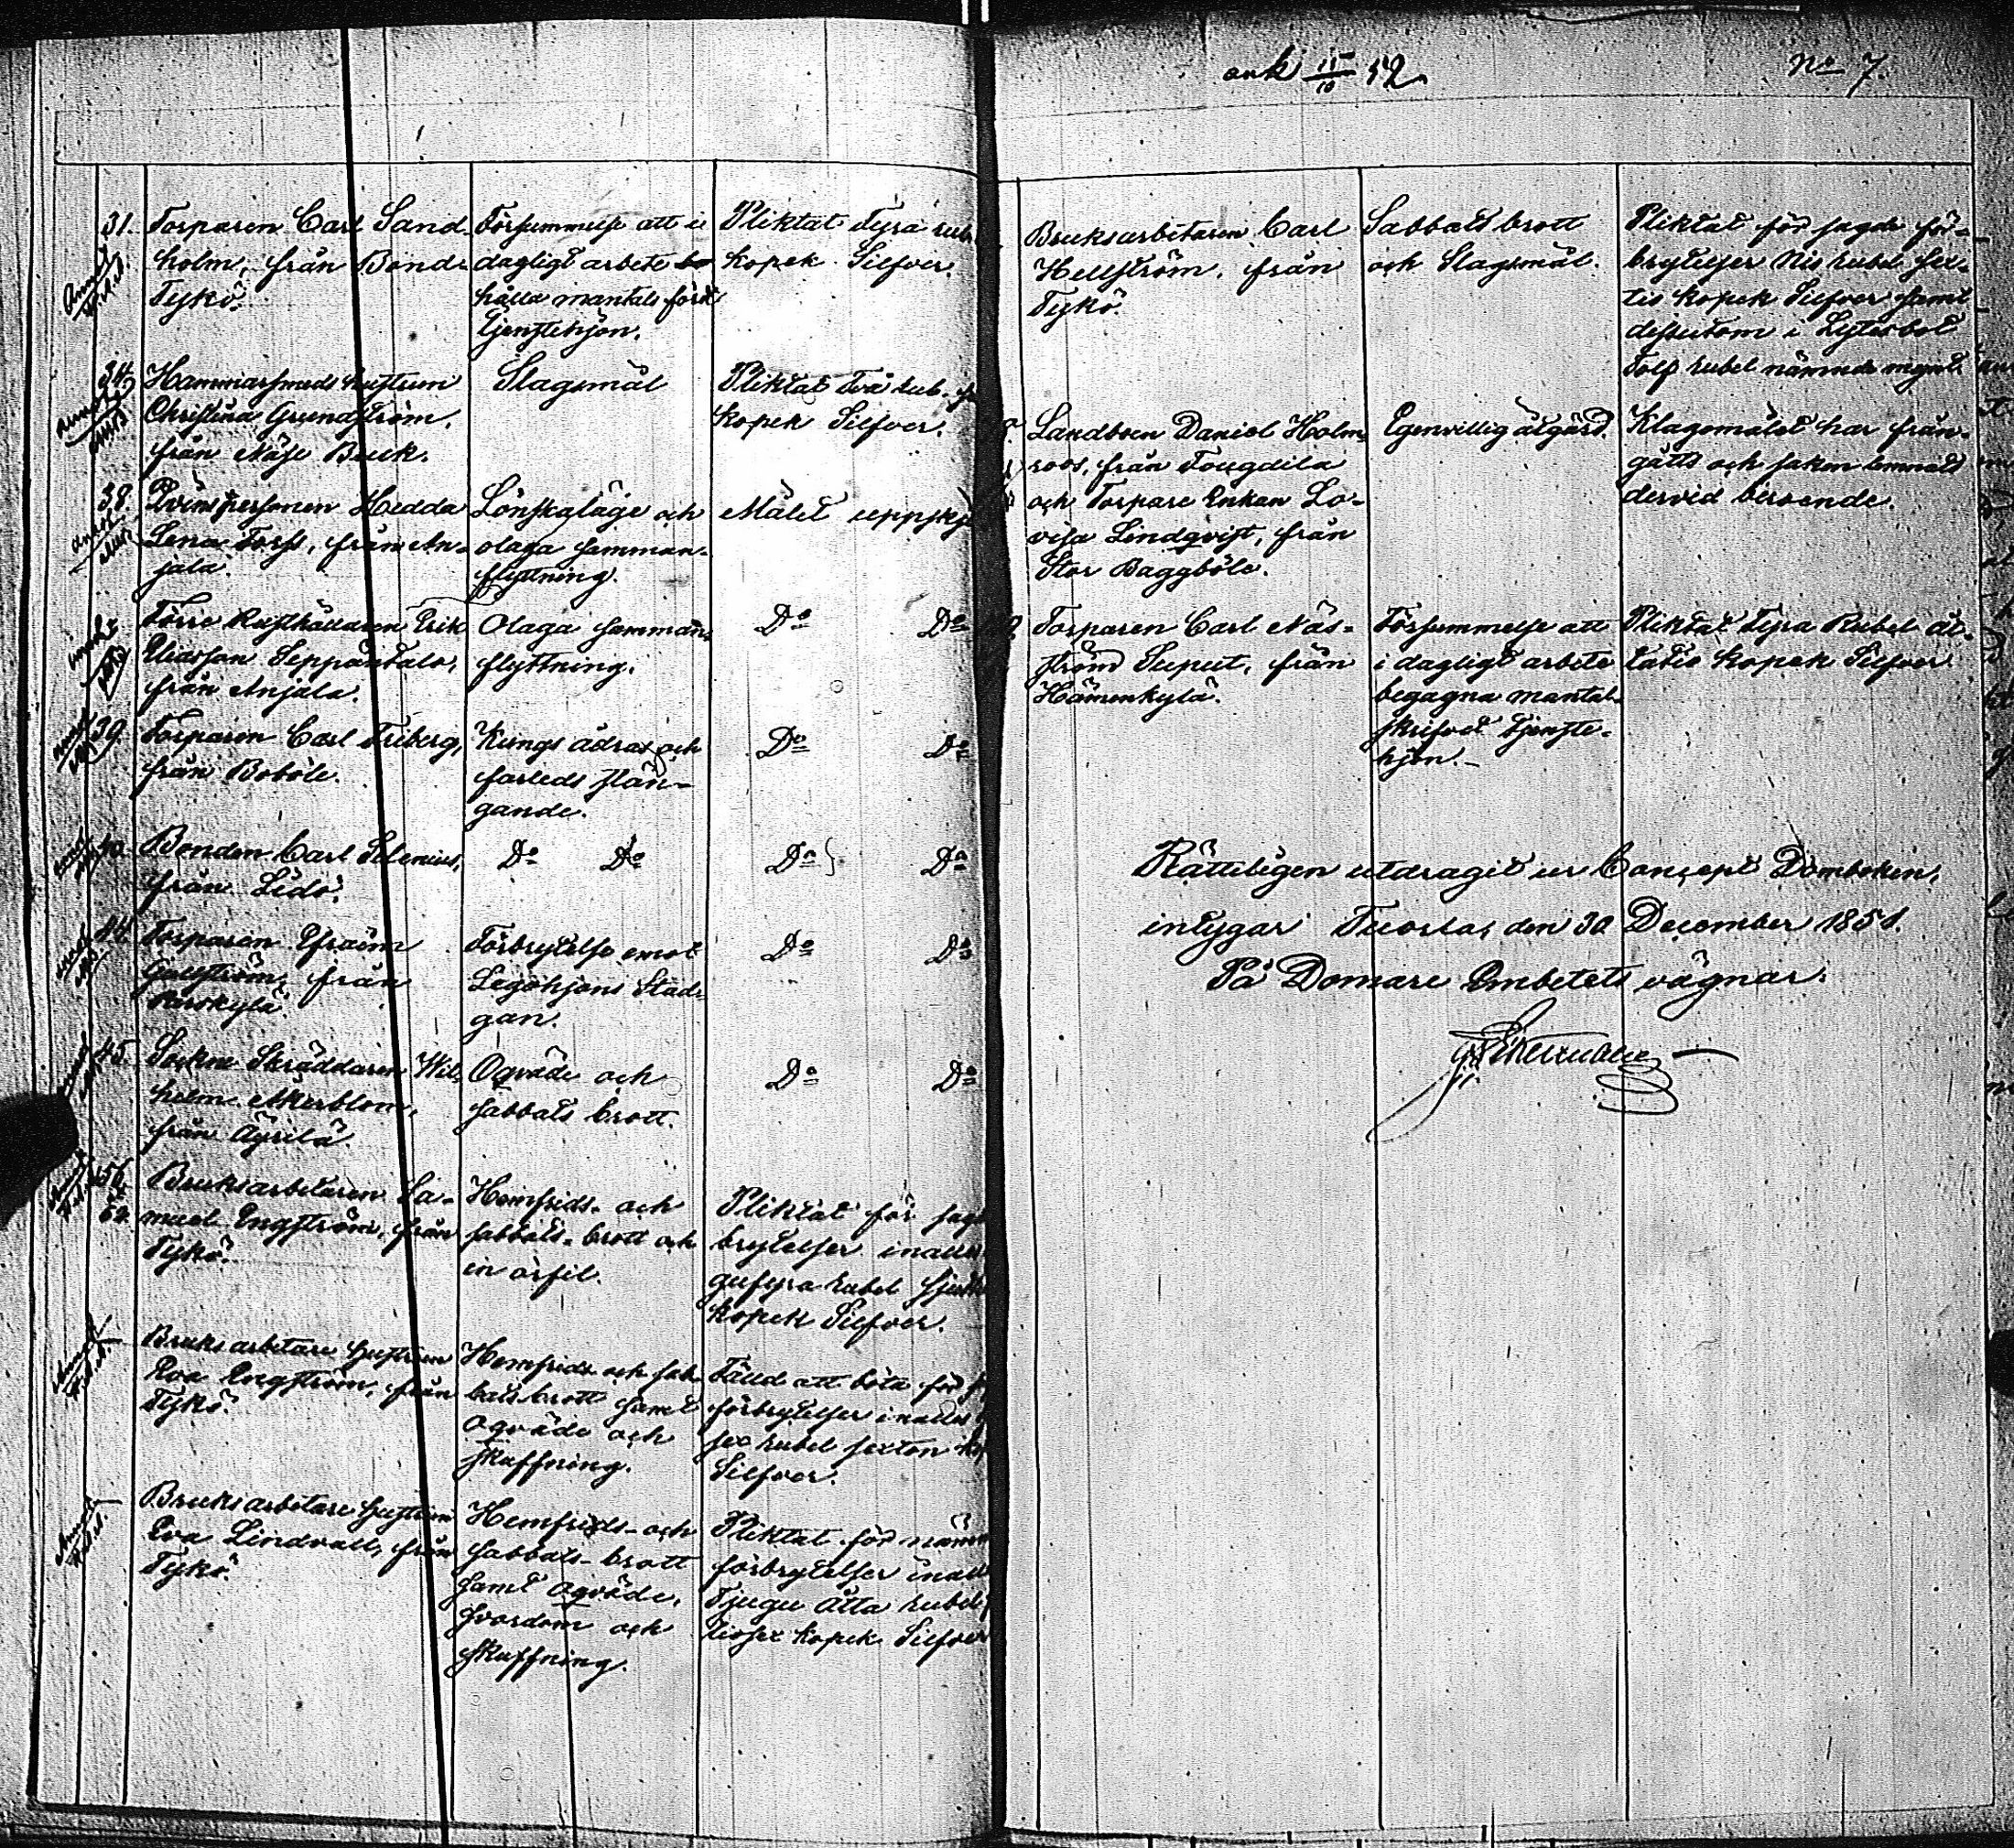 ank 15/10 52
No 7.
31. Torparen Carl Sand-
holm, från Bond-
Tykö.
Försummelse att i
dagligt arbete
hålla mantals förd
Tjenstehjon.
Pliktat Fyra rub
kopek Silfver.
34. Hammarsmeds hustrun
Christina Grundström,
från Näse Bruk.
Slagsmål
Pliktat Två rub.
kopek Silfver.
38. Qvinspersonen Hedda
Lena Forss, från An-
jala.
Lönskaläge och
olaga samman-
flyttning.
Målet uppskj
Förre Rusthållaren Erik
Eliasson Seppäntalo,
från Anjala.
Olaga samman-
flyttning.
Do Do
39. Torparen Carl Friberg,
från Boböle.
Kungs ådras och
farleds stän-
gande.
Do Do
40. Bonden Carl Selenius,
från Lidö.
Do Do
Do Do
44. Torparen Efraim
från
Förbrytelse emot
Legohjons Stad-
gan.
Do Do
45. Sockne Skräddaren Wil-
helm Åkerblom,
från Äyrilä.
Oqväde och
sabbats brott.
Do Do
56. Bruksarbetaren Sa-
muel Engström, från
Tykö.
Hemfrids- och
sabbats-brott och
en örfil.
Pliktat för sagd
brytelser inalles
gufyra rubel
kopek Silfver.
Bruksarbetare hustrun
Eva Engström, från
Tykö.
Hemfrids och sab-
batsbrott samt
oqväde och
skuffning.
Fälld att böta för
förbrytelser inalles
sex rubel sexton kop
Silfver.
Bruksarbetare hustrun
Eva Lindvall, från
Tykö.
Hemfrids- och
sabbats-brott
samt oqväde,
svordom och
skuffning.
Pliktat för nämn
förbrytelser inall
Tjugu åtta rubel
tiosex kopek Silfver
Bruksarbetaren Carl
Hellström, från
Tykö.
Sabbats brott
och Slagsmål.
Pliktat för sagde för-
brytelser Nio rubel sex-
tio kopek Silfver samt
dessutom i Lytesbot
Tolf rubel nämnde mynt.
Landboen Daniel Holm-
roos, från Tougdila
och Torpare Enkan Lo-
visa Lindqvist, från
Stor Baggböle.
Egenvillig åtgärd.
Klagomålet har från-
gåtts och saken lemnats
dervid beroende.
Torparen Carl Näs-
ström Suput, från
Hämenkylä.
Försummelse att
i dagligt arbete
begagna mantal-
skrifvet tjenste-
hjon.
Pliktat Fyra Rubel åt-
tatio kopek Silfver
Rätteligen utdragit ur Concept Domboken,
intygar Tuorla, den 30 December 1851.
På Domare Embetets vägnar.